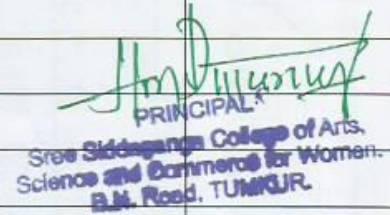 PRINCIPAL
Sree Siddaganga College of Arts,
Science and Commerce for Women.
B.H. Road, TUMKUR.